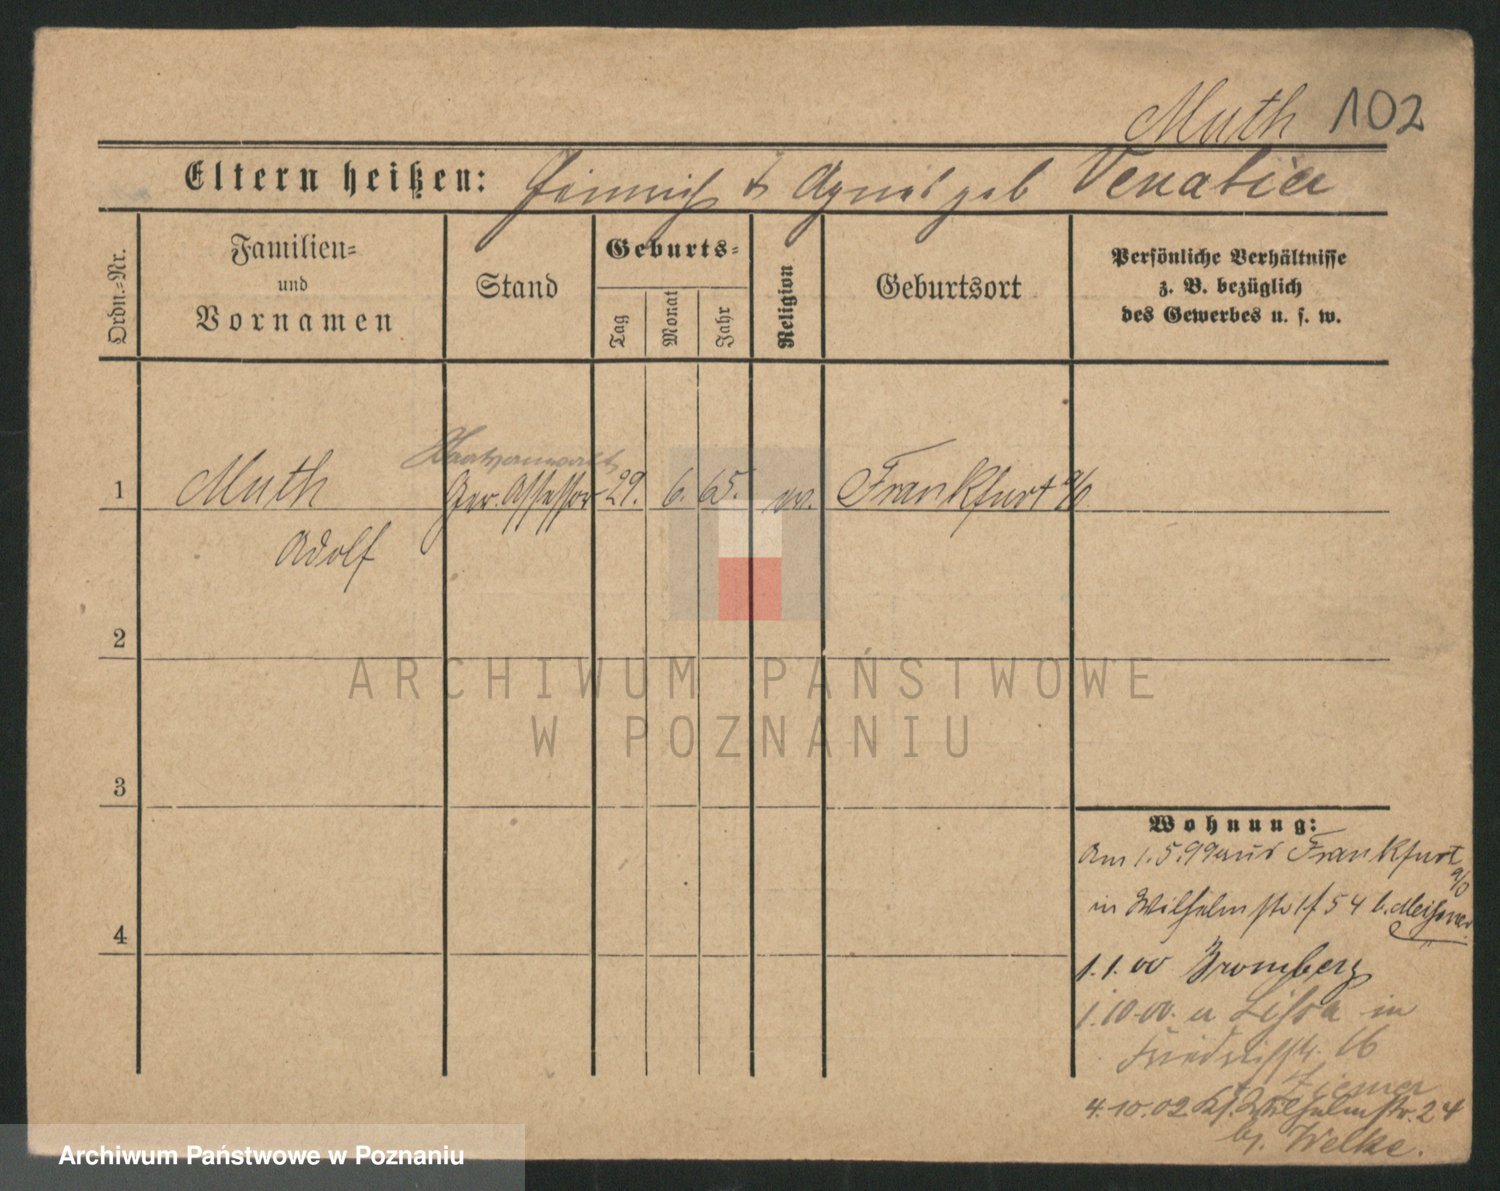 Muth 102
Eltern heißen: Heinrich & Agnes geb Venatier
Ordn.-Nr.
Familien-
und
Vornamen
Stand
Geburts-
Tag
Monat
Jahr
Religion
Geburtsort
Persönliche Verhältnisse
z. B. bezüglich
des Gewerbes u. s. w.
Staatsanwalt
1 Muth Ger. Assessor 29. 6. 65. ev. Frankfurt a/O
Adolf
2
3
4
Wohnung:
Am 1.5.99 aus Frankfurt
a/O
in Wilhelmstr 54 b. Meissner
1.1.00 Bromberg
1.10.00. a Lissa in
Friedrichstr. 16
Ziemer
4.10.02 Wilhelmstr. 24
b. Welke.
ARCHIWUM PAŃSTWOWE
W POZNANIU
Archiwum Państwowe w Poznaniu